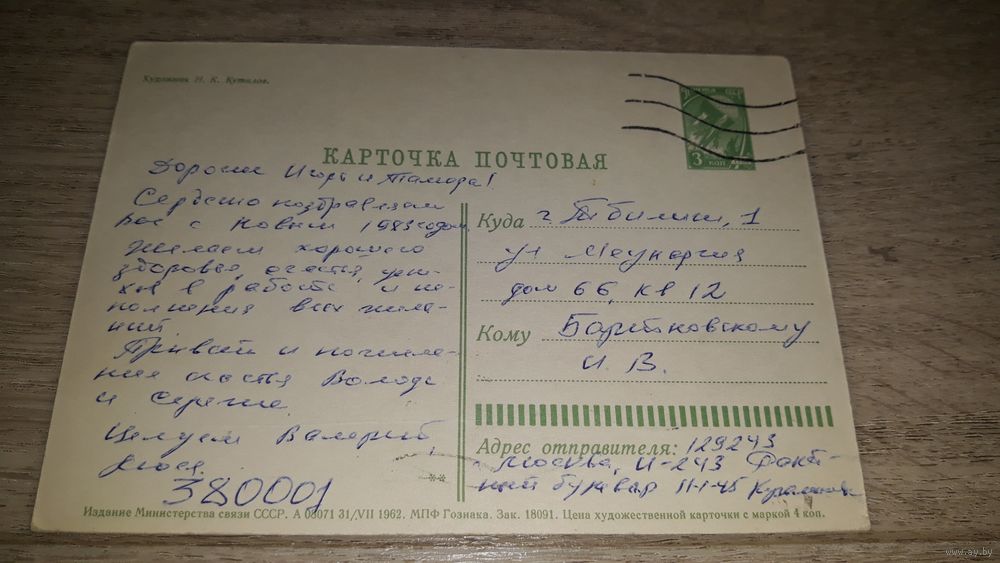 Художник Н. К. Куталов.
ПОЧТА СССР
3 КОП
КАРТОЧКА ПОЧТОВАЯ
Дорогие Игорь и Тамара!
Сердечно поздравляем
Вас с Новым 1983 годом.
Желаем хорошего
здоровья, счастья, успе-
хов в работе и ис-
полнения всех жела-
ний.
Привет и пожела-
ния счастья Володе
и Сереже.
Целуем Валерий,
Люся.
380001
Куда г. Тбилиси, 1
ул Меунаргия
дом 66, кв 12
Кому Барятковскому
И. В.
Адрес отправителя: 129243
Москва, И-243
бульвар 11-1-45
**
Издание Министерства связи СССР. А 08071 31/VII 1962. МПФ Гознака. Зак. 18091. Цена художественной карточки с маркой 4 коп.
www.ay.by